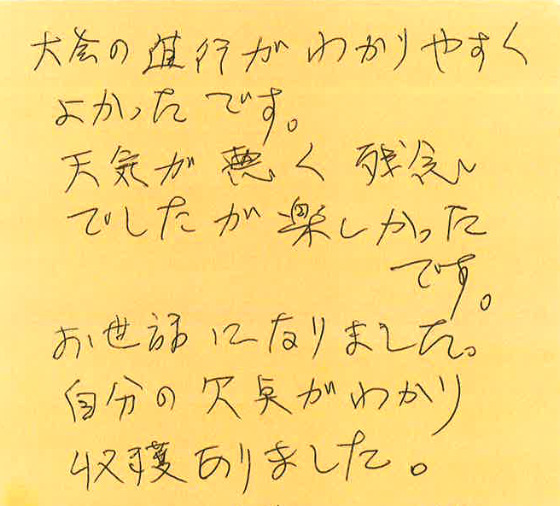 大会の進行がわかりやすく
よかったです。
天気が悪く残念
でしたが楽しかった
です。
お世話になりました。
自分の欠点がわかり
収穫ありました。